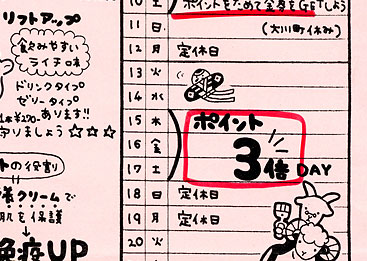 リフトアップ
飲みやすい
ライチ味
ドリンクタイプ
ゼリータイプ
あります!!
守りましょう☆☆☆
の役割
クリームで
肌を保護
↓
免疫UP
10 土 ポイントをためて金券をGETしよう
11 日 (大川町休み)
12 月 定休日
13 火
14 水
15 木 ポイント
16 金 3倍DAY
17 土
18 日 定休日
19 月 定休日
20 火